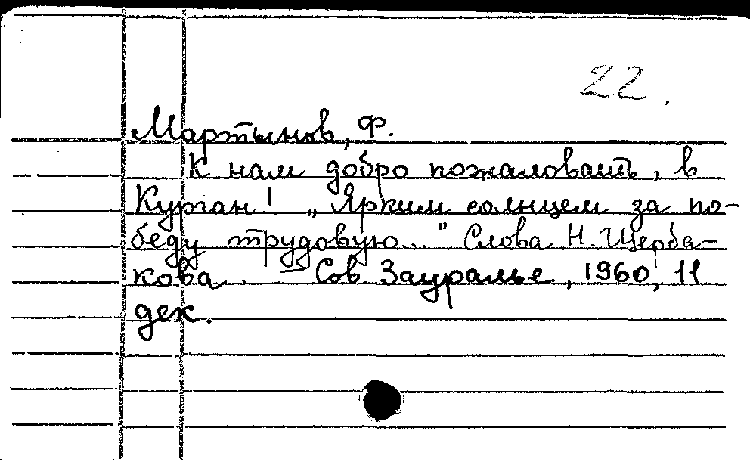 22.
Мартынов, Ф.
К нам добро пожаловать, в
Курган! „Ярким солнцем за по-
беду трудовую..." Слова Н. Щерба-
кова. – Сов Зауралье, 1960, 11
дек.